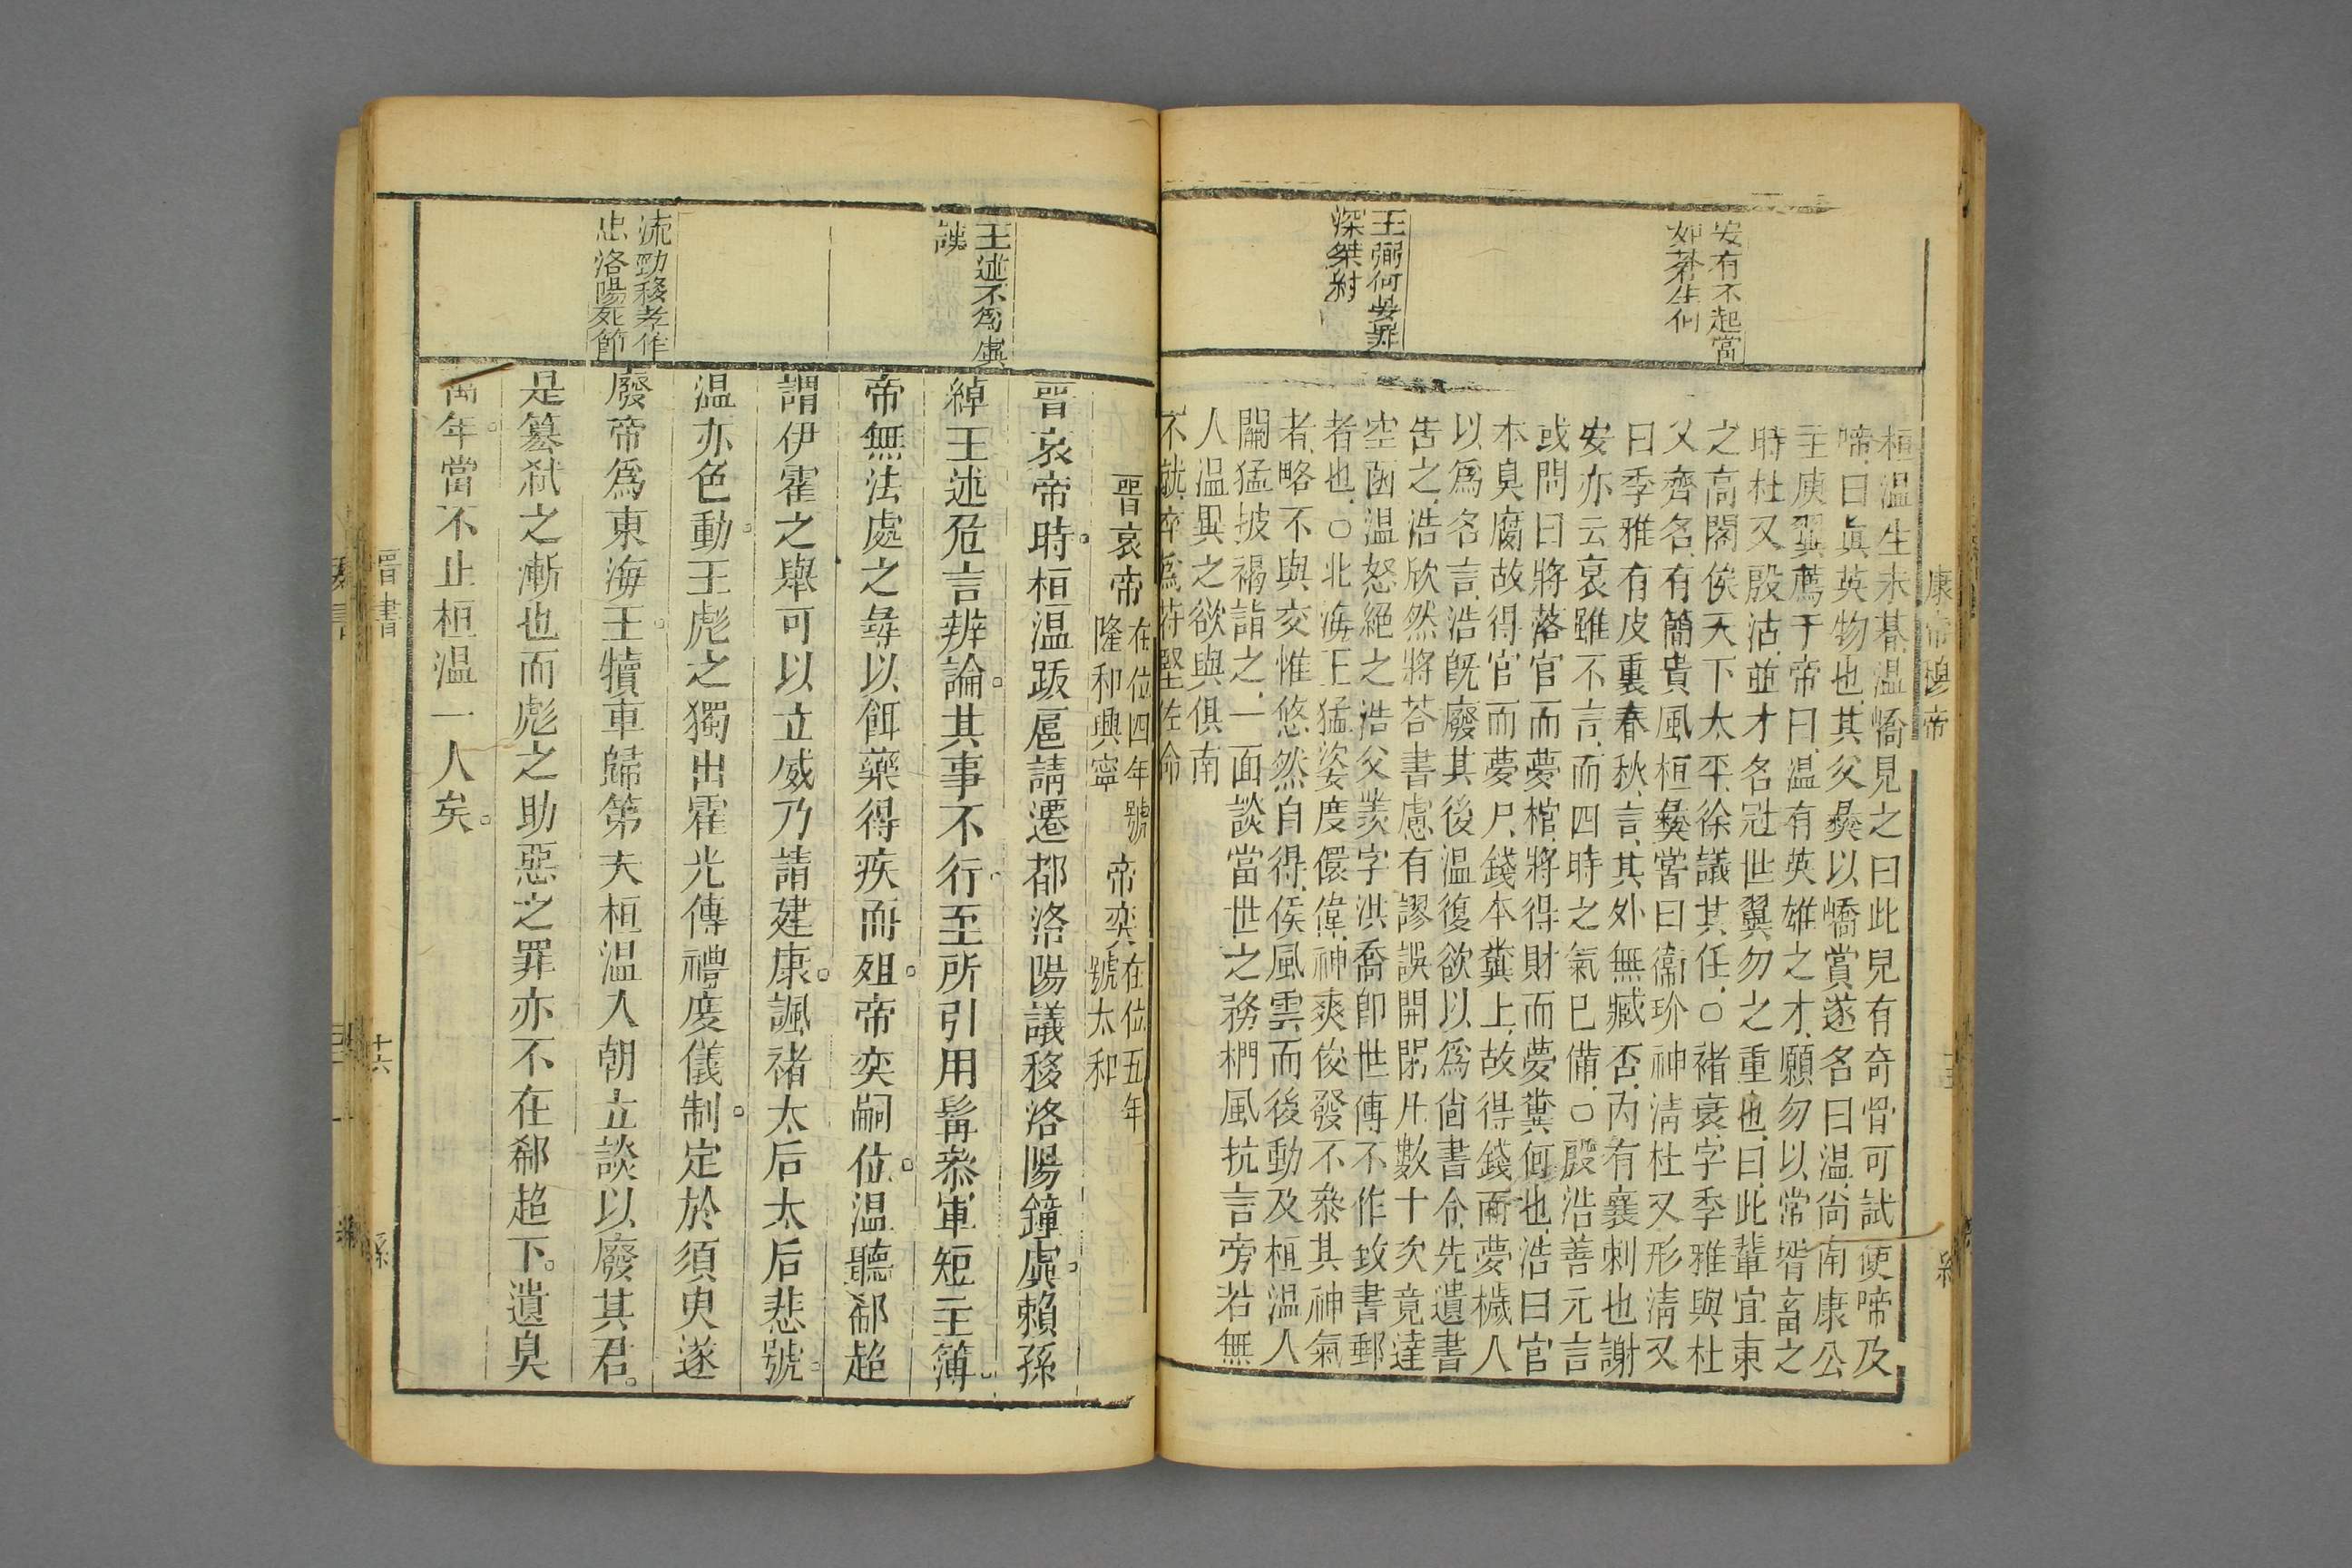 康帝穆帝
安有不起當
如蒼生何
王弼何晏罪
深桀紂
桓温生未朞温嶠見之曰此兒有奇骨可試便啼及
啼曰眞英物也其父彝以嶠賞遂名曰温尚南康公
主庾翼薦于帝曰温有英雄之才願勿以常壻畜之
時杜乂殷浩並才名冠世翼勿之重也曰此輩宜束
之高閣俟天下太平徐議其任○褚裒字季雅與杜
乂齊名有簡貴風桓彝嘗曰衞玠神淸杜乂形淸又
曰季雅有皮裏春秋言其外無臧否内有襄刺也謝
安亦云裒雖不言而四時之氣已備○殷浩善元言
或問曰將落官而夢棺將得財而夢糞何也浩曰官
本臭腐故得官而夢尸錢本糞上故得錢而夢穢人
以爲名言浩旣廢其後温復欲以爲尙書令先遺書
告之浩欣然將荅書慮有謬誤開閉凡數十次竟達
空函温怒絕之浩父羨字洪喬卽世傳不作致書郵
者也○北海王猛姿度儇偉神爽俊發不叅其神氣
者略不與交惟悠然自得俟風雲而後動及桓温人
關猛披褐詣之一面談當世之務捫風抗言旁若無
人温異之欲與俱南
不就卒爲苻堅佐命
王述不爲虛
讓
沈勁移孝作
忠洛陽死節
晉哀帝在位四年號隆和興寧 帝奕在位五年號太和
晉哀帝時桓温跋扈請遷都洛陽議移洛陽鐘虡賴孫
綽王述危言辨論其事不行至所引用髯叅軍短主簿
帝無法處之彝以餌藥得疾而殂帝奕嗣位温聽郗超
謂伊霍之舉可以立威乃請建康諷褚太后太后悲號
温亦色動王彪之獨出霍光傳禮度儀制定於須臾遂
廢帝爲東海王犢車歸第夫桓温入朝立談以廢其君
是簒弑之漸也而彪之助惡之罪亦不在郗超下遺臭
萬年當不止桓温一人矣
晉書
十六